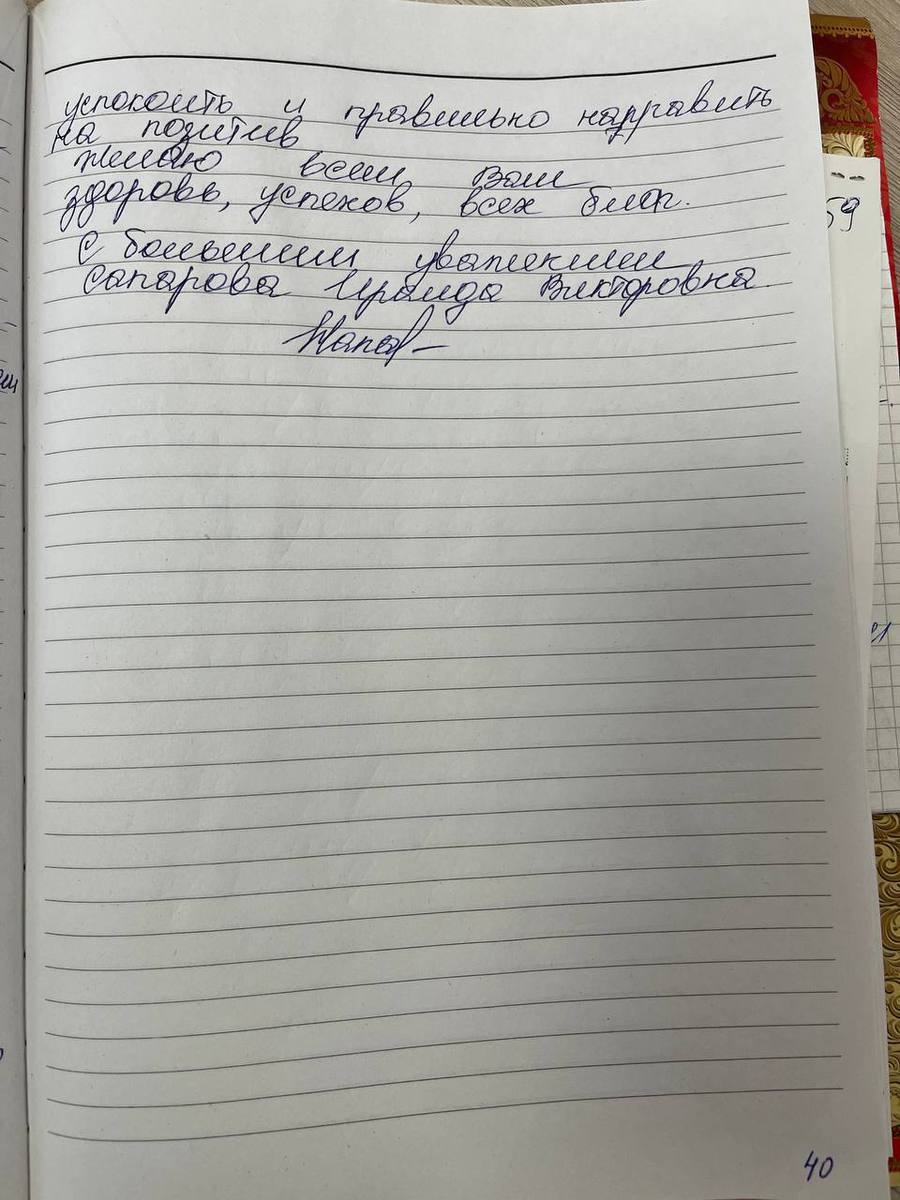 успокоить и правильно направить
на позитив
желаю всем Вам
здоровь, успехов, всех благ.
С большим уважением
Сапарова Ираида Викторовна.
59
40